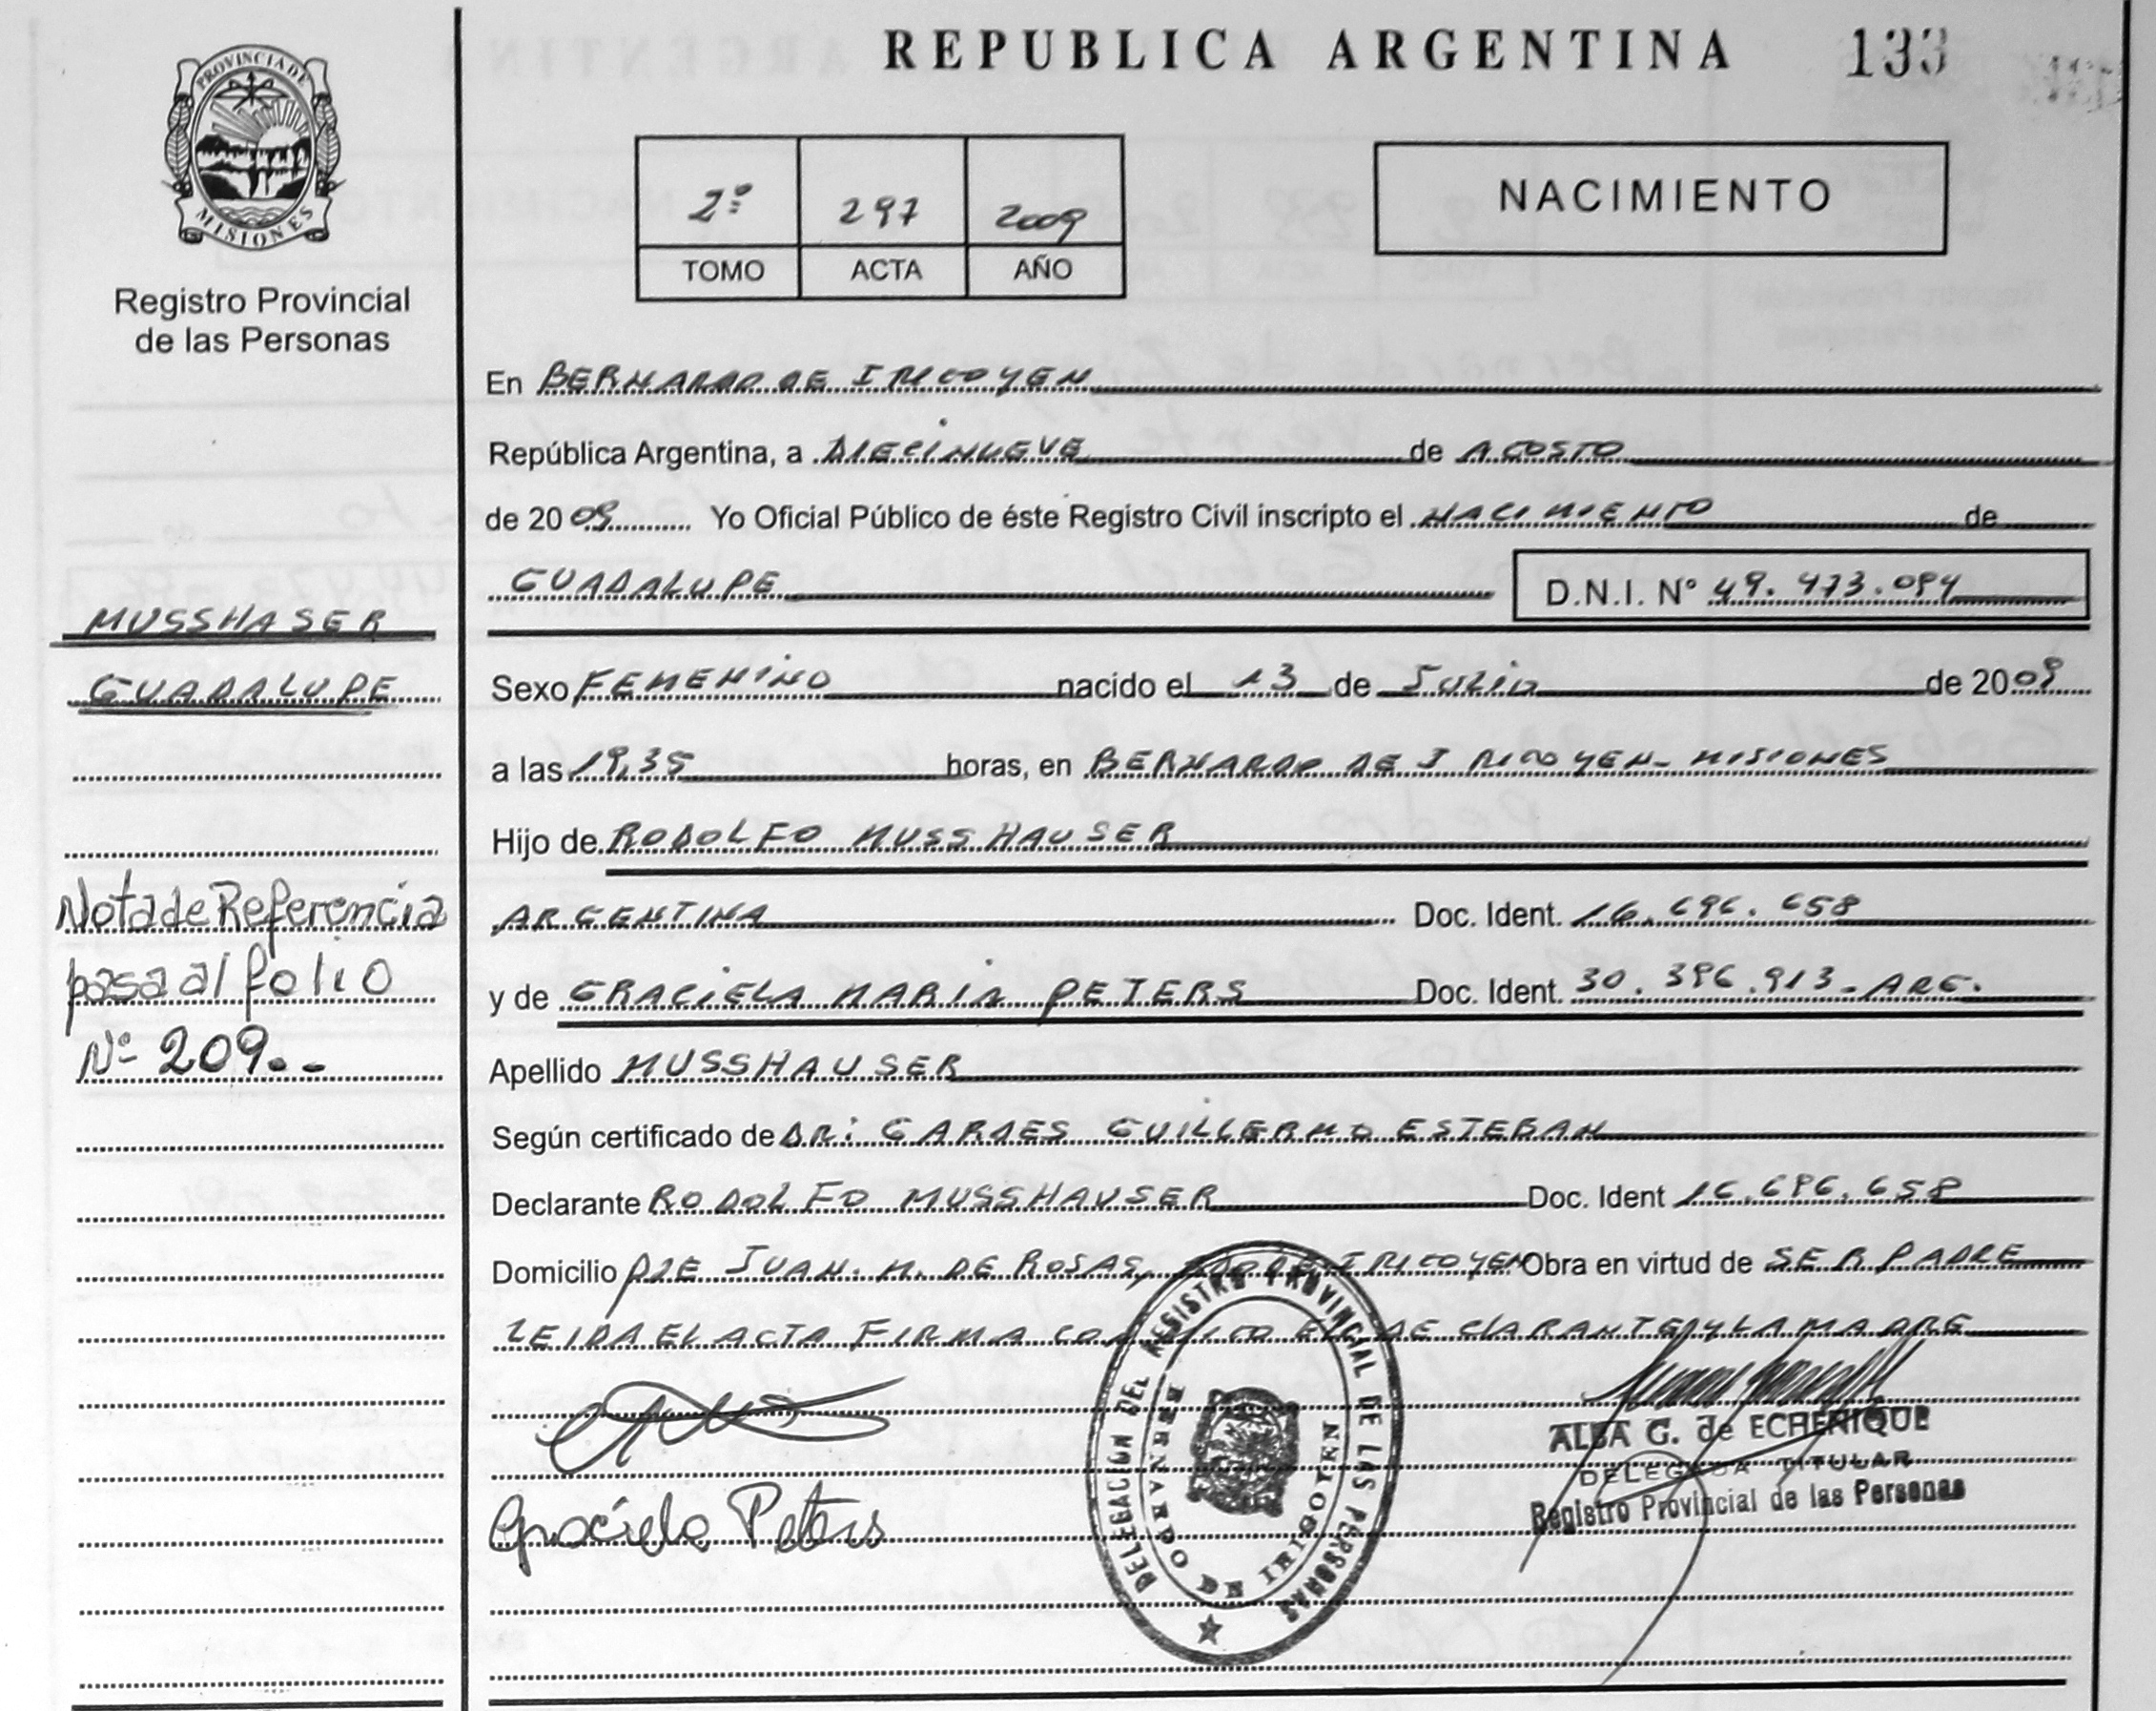 REPUBLICA ARGENTINA 133
PROVINCIA DE
MISIONES
Registro Provincial
de las Personas
2º 297 2009
TOMO ACTA AÑO
NACIMIENTO
En BERNARDO DE IRIGOYEN
República Argentina, a DIECINUEVE de AGOSTO
de 2009 Yo Oficial Público de éste Registro Civil inscripto el NACIMIENTO de
GUADALUPE D.N.I. N° 49.473.094
MUSSHASER
GUADALUPE
Sexo FEMENINO nacido el 13 de JULIO de 2009
a las 19,35 horas, en BERNARDO DE IRIGOYEN - MISIONES
Hijo de RODOLFO MUSSHAUSER
ARGENTINA Doc. Ident. 16.696.658
y de GRACIELA MARIA PETERS Doc. Ident. 30.396.913 - ARG.
Nota de Referencia
pasa al folio
Nº 209.-
Apellido MUSSHAUSER
Según certificado de DR: GARDES GUILLERMO ESTEBAN
Declarante RODOLFO MUSSHAUSER Doc. Ident 16.696.658
Domicilio PJE JUAN. M. DE ROSAS, BDO DE IRIGOYEN Obra en virtud de SER PADRE
LEIDA EL ACTA FIRMA CONMIGO EL DECLARANTE Y LA MADRE
Graciela Peters
DELEGACION DEL REGISTRO PROVINCIAL DE LAS PERSONAS
BERNARDO DE IRIGOYEN
ALBA G. de ECHENIQUE
DELEGADA TITULAR
Registro Provincial de las Personas